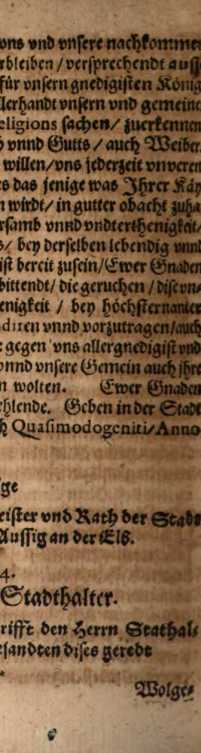 vns vnd vnsere nachkommen
rbleiben / versprechendt auß
für vnsern gnedigisten König
llerhandt vnsern vnd gemeine
eligions sachen / zuerkennen
h vnnd Gutts / auch Weiber
willen / vns jederzeit vnveren
es das jenige was Ihrer Käy
n wirdt / in gutter obacht zuha
rsamb vnnd vndterthenigkeit /
s / bey derselben lebendig vnnd
ist bereit zusein / Ewer Gnaden
bittendt / die geruchen / disevns
enigkeit / bey höchsternanter
diren vnnd vorzutragen / auch
t gegen vns allergnedigist vnd
vnnd vnsere Gemein auch jhre
n wolten. Ewer Gnaden
ehlende. Geben in der Stadt
h Quasimodogeniti / Anno
ge
eister vnd Rath der Stadt
Aussig an der Elb.
4.
Stadthalter.
rifft den Herrn Stathal-
esandten dises geredt
Wolge-